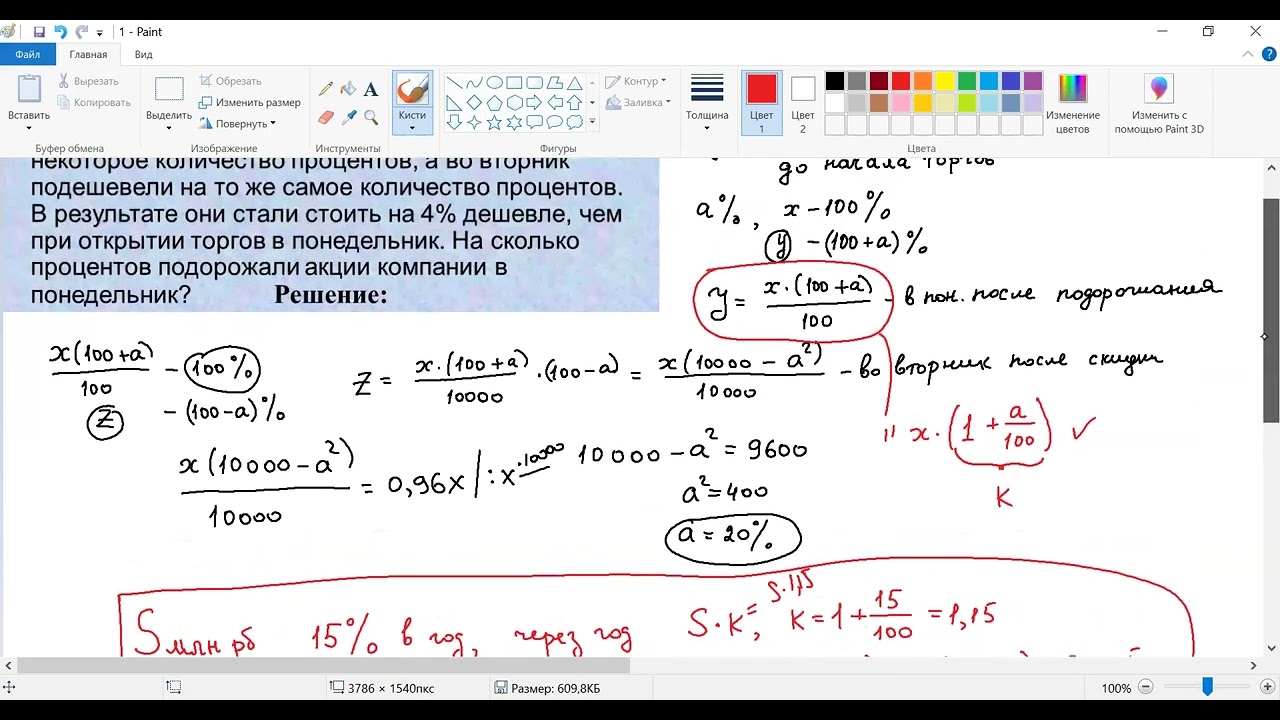 1 - Paint
Файл Главная Вид
Вставить
Вырезать
Копировать
Буфер обмена
Выделить
Обрезать
Изменить размер
Повернуть
Изображение
Инструменты
Кисти
Контур
Заливка
Фигуры
Толщина
Цвет 1
Цвет 2
Изменение цветов
Изменить с помощью Paint 3D
Цвета
некоторое количество процентов, а во вторник
подешевели на то же самое количество процентов.
В результате они стали стоить на 4% дешевле, чем
при открытии торгов в понедельник. На сколько
процентов подорожали акции компании в
понедельник? Решение:
до начала торгов
a%, x - 100%
y - (100+a)%
y = x·(100+a)/100 - в пон. после подорожания
x(100+a)/100 - 100%
z - (100-a)%
z = x·(100+a)/10000 ·(100-a) = x(10000-a²)/10000 - во вторник после скидки
" x·(1+a/100) ✓
K
x(10000-a²)/10000 = 0,96x |:x ·10000
10000-a² = 9600
a² = 400
a = 20%
S млн рб 15% в год, через год S·K = S·1,15, K = 1+15/100 = 1,15
3786 × 1540пкс
Размер: 609,8КБ
100%